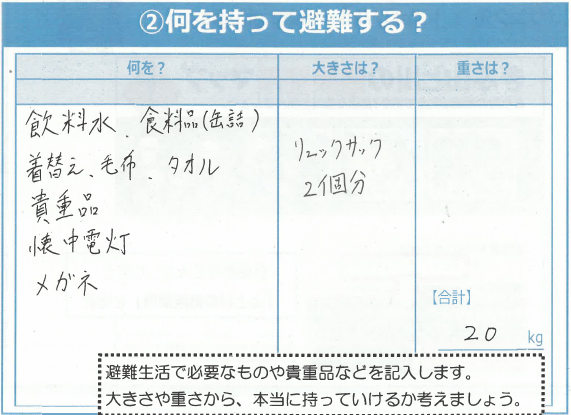 ②何を持って避難する？
何を？ 大きさは？ 重さは？
飲料水、食料品(缶詰)
着替え、毛布、タオル
貴重品
懐中電灯
メガネ
リュックサック
2個分
【合計】
20 kg
避難生活で必要なものや貴重品などを記入します。
大きさや重さから、本当に持っていけるか考えましょう。